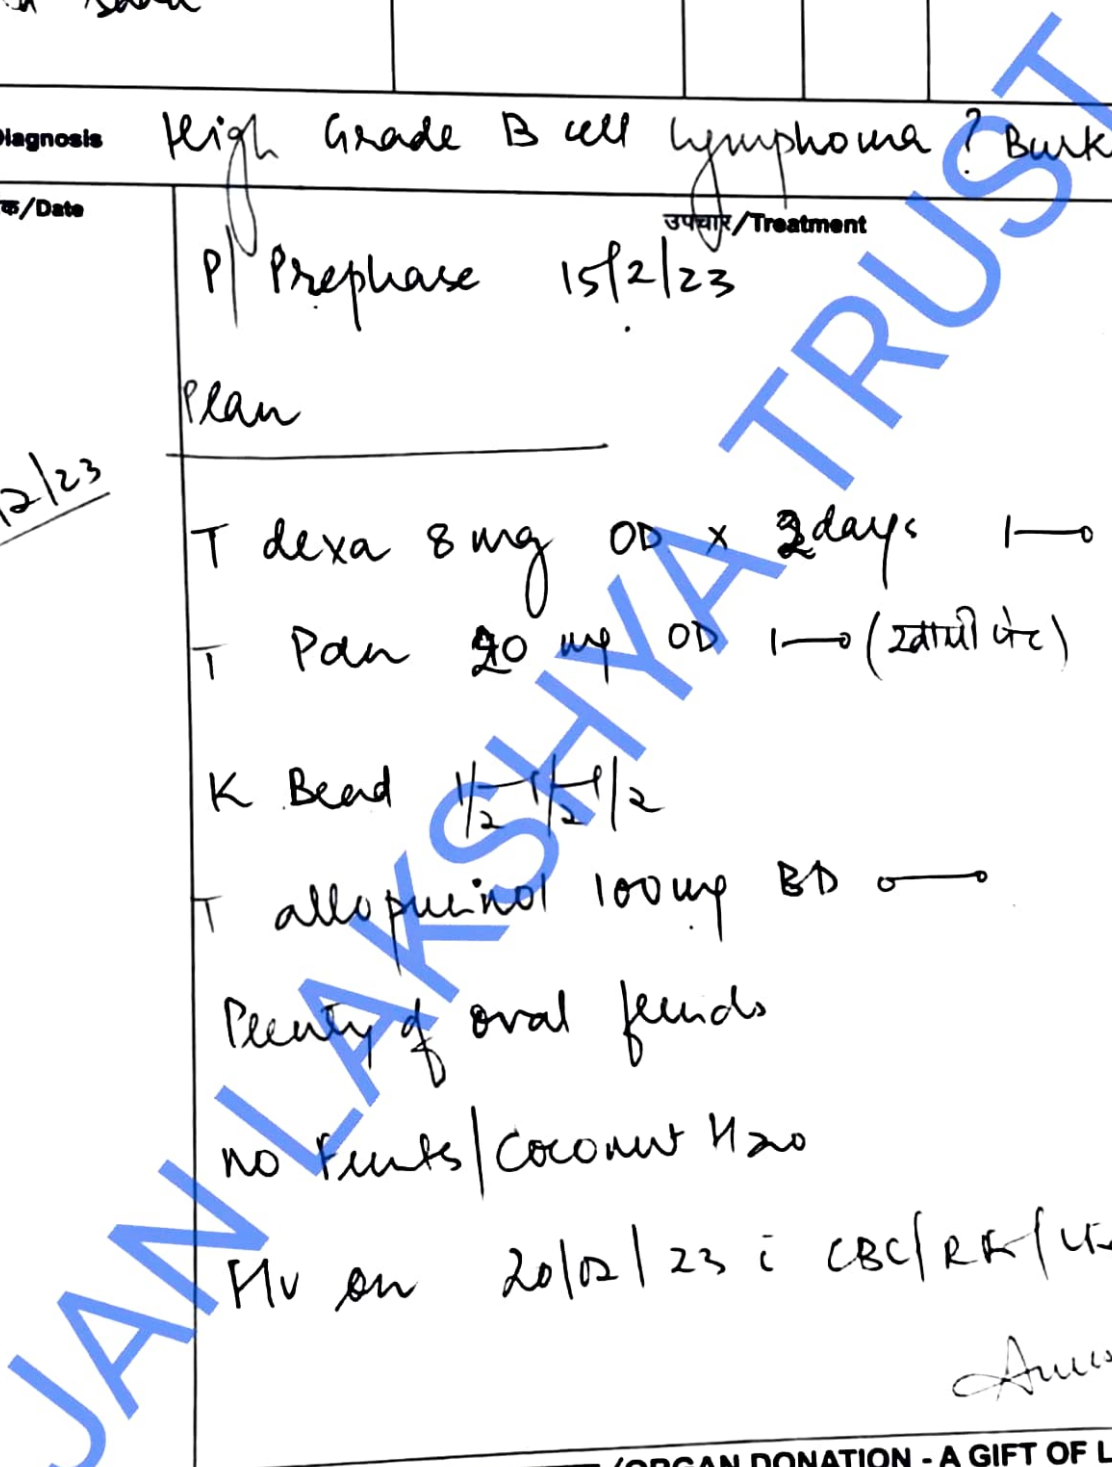 Diagnosis High Grade B cell lymphoma ? Burk
क/Date उपचार/Treatment
P/ Prephase 15/2/23
Plan
2/23
T dexa 8 mg OD x 2days 1—0
T Pan 20 mg OD 1—0 (खाली पेट)
K Bead 1/2-1/2-1/2
T allopurinol 100mg BD 0—0
Plenty of oral fluids
no Fruits/Coconut H2O
F/U on 20/02/23 c CBC/RFT/
(ORGAN DONATION - A GIFT OF L
JAN LAKSHYA TRUST